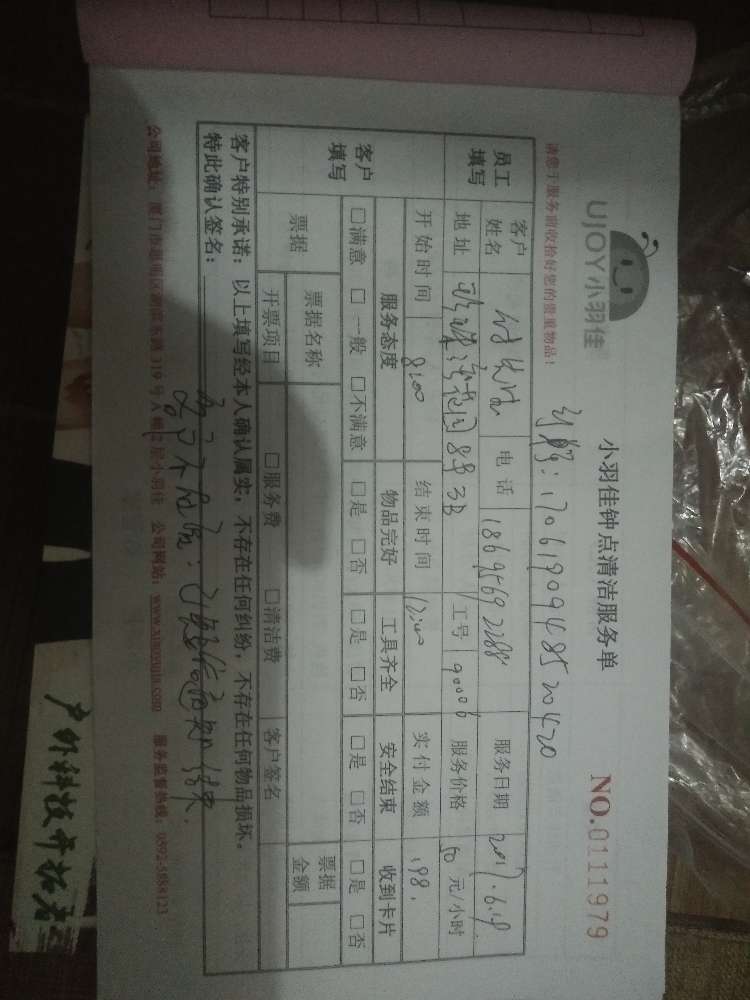 UJOY小羽佳
小羽佳钟点清洁服务单
NO.0111979
请您于服务前收拾好您的贵重物品!
170619094852 0420
员工填写
客户姓名
电话 18695692288
服务日期 2017.6.19
地址 8号3B
工号 90006
服务价格 50 元/小时
开始时间 8:00
结束时间 12:00
实付金额 198.
客户填写
服务态度 物品完好 工具齐全 安全结束 收到卡片
□满意 □一般 □不满意 □是 □否 □是 □否 □是 □否 □是 □否
票据
票据名称
票据金额
开票项目 □服务费 □清洁费 客户签名
客户特别承诺:以上填写经本人确认属实,不存在任何纠纷,不存在任何物品损坏。
特此确认签名:
公司地址:厦门市思明区 319号A幢12层小羽佳 公司网站:www.xiaoyujia.com 服务监督热线:0592-5688123
户外科技开拓者